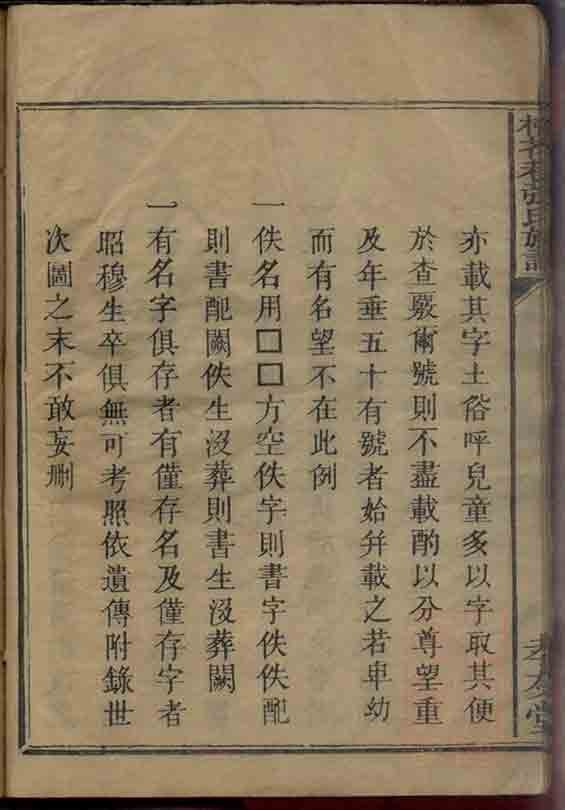 亦載其字土俗呼兒童多以字取其便
於查覈爾號則不盡載酌以分尊望重
及年垂五十有號者始幷載之若卑幼
而有名望不在此例
一佚名用□□方空佚字則書字佚佚配
則書配闕佚生沒葬則書生沒葬闕
一有名字俱存者有僅存名及僅存字者
昭穆生卒俱無可考照依遺傳附錄世
次圖之末不敢妄刪
張氏族譜
孝友堂